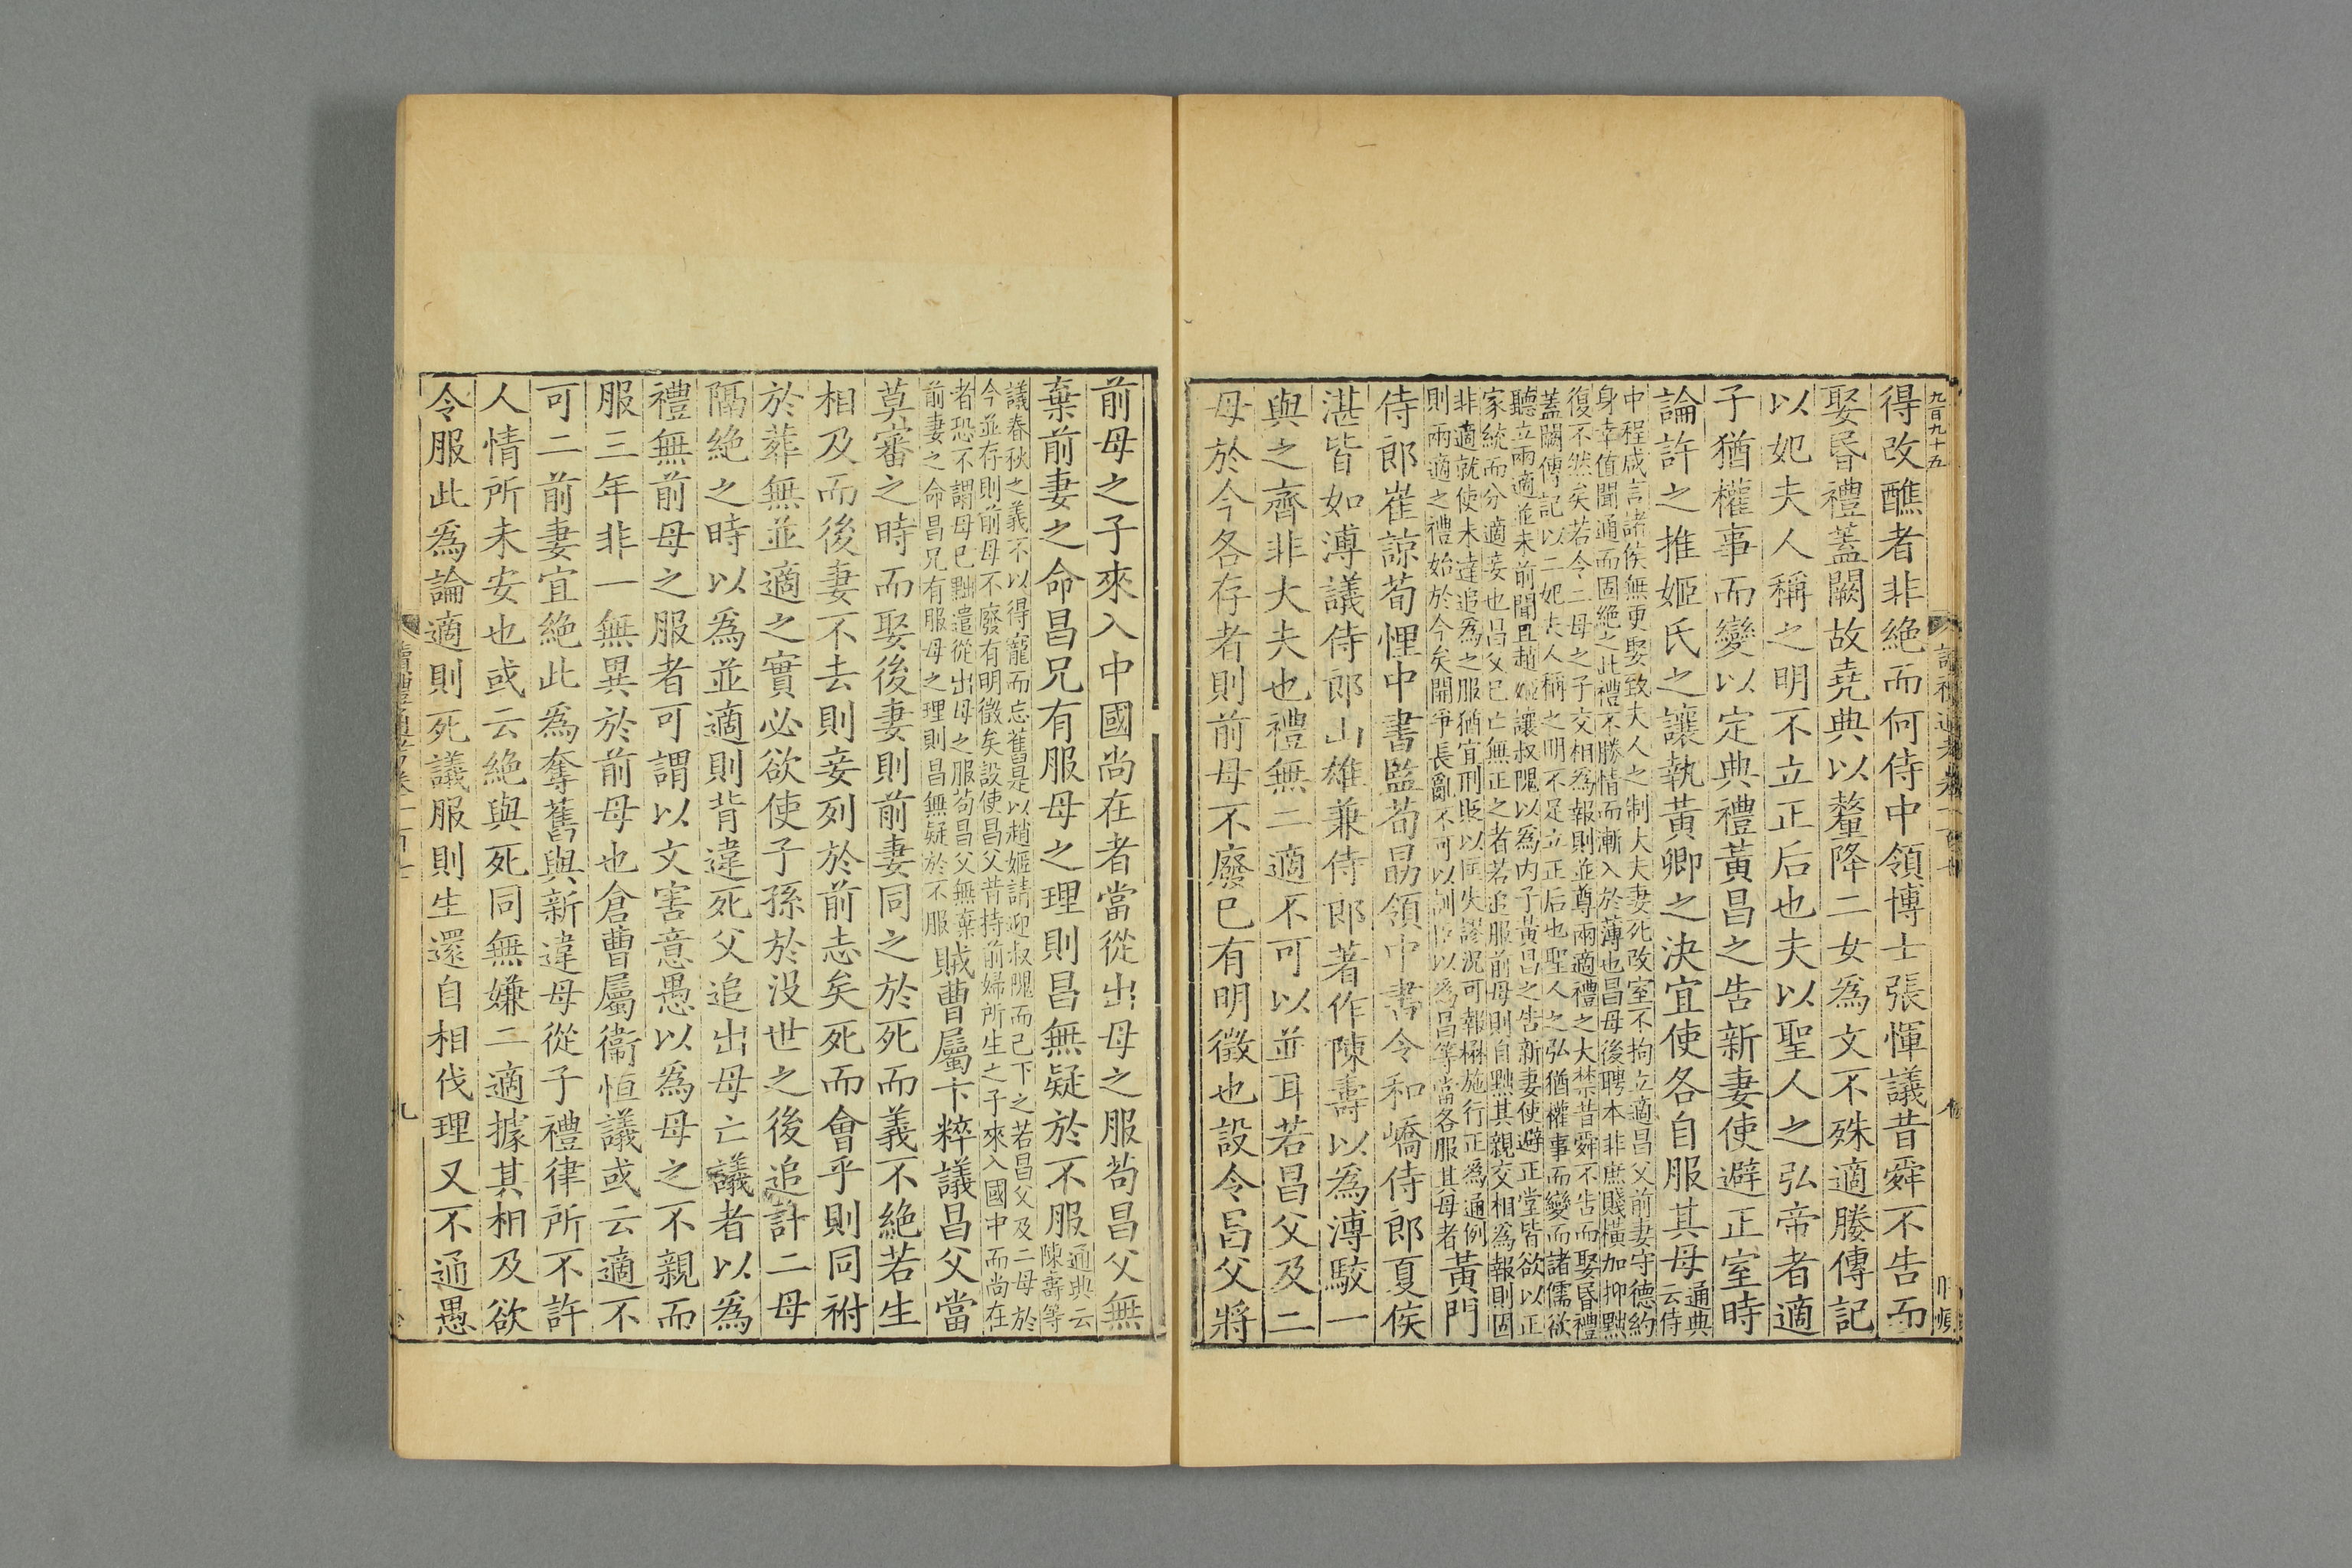 九百九十五
讀禮通考卷一百十
得改醮者非絶而何侍中領博士張惲議昔舜不告而
娶昏禮蓋闕故堯典以釐降二女為文不殊適媵傳記
以妃夫人稱之明不立正后也夫以聖人之弘帝者適
子猶權事而變以定典禮黃昌之告新妻使避正室時
論許之推姬氏之讓執黃卿之決宜使各自服其母
通典
云侍
中程咸言諸侯無更娶致夫人之制大夫妻死改室不拘立適昌父前妻守德約
身幸值聞通而固絶之此禮不勝情而漸入於薄也昌母後聘本非庶賤橫加抑黜
復不然矣若令二母之子交相為報則並尊兩適禮之大禁昔舜不告而娶昏禮
蓋闕傳記以二妃夫人稱之明不足立正后也聖人之弘猶權事而變而諸儒欲
聽立兩適並未前聞且趙姬讓叔隗以為內子黃昌之告新妻使避正堂皆欲以正
家統而分適妾也昌父已亡無正之者若追服前母則自黜其親交相為報則固
非適就使未達追為之服猶宜刑貶以匡失謬況可報楙施行正為通例
則兩適之禮始於今矣開爭長亂不可以訓臣以為昌等當各服其母者
黃門
侍郎崔諒荀悝中書監荀勗領中書令和嶠侍郎夏侯
湛皆如溥議侍郎山雄兼侍郎著作陳壽以為溥駮一
與之齊非大夫也禮無二適不可以並耳若昌父及二
母於今各存者則前母不廢已有明徵也設令昌父將
前母之子來入中國尚在者當從出母之服苟昌父無
棄前妻之命昌兄有服母之理則昌無疑於不服
通典云
陳壽等
議春秋之義不以得寵而忘舊是以趙姬請迎叔隗而己下之若昌父及二母於
今並存則前母不廢有明徵矣設使昌父昔持前婦所生之子來入國中而尚在
者恐不謂母已黜遣從出母之服苟昌父無棄
前妻之命昌兄有服母之理則昌無疑於不服
賊曹屬卞粹議昌父當
莫審之時而娶後妻則前妻同之於死而義不絶若生
相及而後妻不去則妾列於前志矣死而會乎則同祔
於葬無並適之實必欲使子孫於没世之後追計二母
隔絶之時以為並適則背違死父追出母亡議者以為
禮無前母之服者可謂以文害意愚以為母之不親而
服三年非一無異於前母也倉曹屬衞恒議或云適不
可二前妻宜絶此為奪舊與新違母從子禮律所不許
人情所未安也或云絶與死同無嫌二適據其相及欲
令服此為論適則死議服則生還自相伐理又不通愚
九